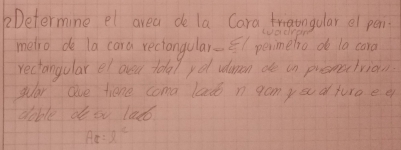 2 Determine el area de la Cara triaungular el peri-
metro de la cara rectangular - El perimetro de la cara
rectangular el area total y el volumen de un prisma trian-
gular que tiene como lado n 9cm y su altura es el
doble de su lado